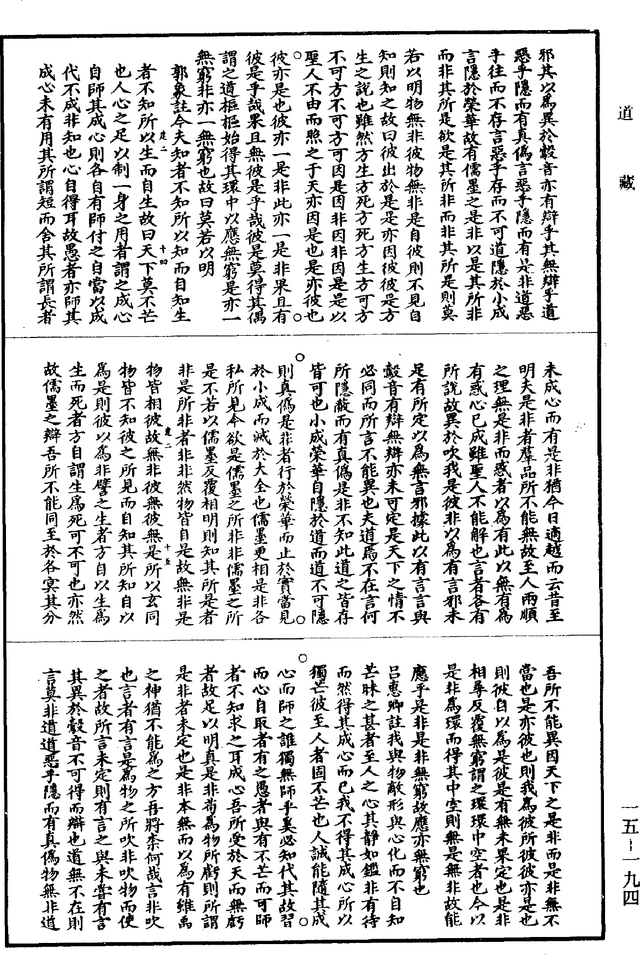 道藏
邪其以為異於鷇音亦有辯乎其無辯乎道
惡乎隱而有真偽言惡乎隱而有是非道惡
乎往而不存言惡乎存而不可道隱於小成
言隱於榮華故有儒墨之是非以是其所非
而非其所是欲是其所非而非其所是則莫
若以明物無非彼物無非是自彼則不見自
知則知之故曰彼出於是是亦因彼彼是方
生之說也雖然方生方死方死方生方可方
不可方不可方可因是因非因非因是是以
聖人不由而照之于天亦因是也是亦彼也
彼亦是也彼亦一是非此亦一是非果且有
彼是乎哉果且無彼是乎哉彼是莫得其偶
謂之道樞樞始得其環中以應無窮是亦一
無窮非亦一無窮也故曰莫若以明
郭象註今夫知者不知所以知而自知生
者不知所以生而自生故曰天下莫不芒
也人心之足以制一身之用者謂之成心
自師其成心則各自有師付之自當以成
代不成非知也心自得耳故愚者亦師其
成心未有用其所謂短而舍其所謂長者
未成心而有是非猶今日適越而云昔至
明夫是非者羣品所不能無故至人兩順
之理無是非而惑者以為有此以無有為
有惑心已成雖聖人不能解也言者各有
所說故異於吹我是彼非以為有言邪未
足有所定以為無言邪據此以有言言與
鷇音有辯無辯亦未可定是天下之情不
必同而所言不能異也夫道焉不在言何
所隱蔽而有真偽是非不知此道之皆存
皆可也小成榮華自隱於道而道不可隱
則真偽是非者行於榮華而止於實當見
於小成而滅於大全也儒墨更相是非各
私所見今欲是儒墨之所非非儒墨之所
是不若以儒墨反覆相明則知其所是者
非是所非者非非然物皆自是故無非是
物皆相彼故無非彼無彼無是所以玄同
物皆不知彼之所見而自知其所知自以
為是則彼以為非譬之生者方自以生為
生而死者方自謂生為死可不可也亦然
故儒墨之辯吾所不能同至於各冥其分
吾所不能異因天下之是非而是非無不
當也是亦彼也則我為彼所彼彼亦是也
則彼自以為是彼是有無未果定也是非
相尋反覆無窮謂之環環中空者也今以
是非為環而得其中空則無是無非故能
應乎是非是非無窮故應亦無窮也
呂惠卿註我與物敵形與心化而不自知
芒昧之甚者至人之心其靜如鑑非有待
而然得其成心而已我不得其成心所以
獨芒彼至人者固不芒也人誠能隨其成
心而師之誰獨無師乎奚必知代其故習
而心自取者有之愚者與有不芒而可師
者不知求之耳成心吾所受於天而無虧
者故足以明真是非苟為物所虧則所謂
是非者未定也是非本無而以為有雖禹
之神猶不能為之方吾將柰何哉言非吹
也言者有言是為物之所吹非吹物而使
之者故所言未定則有言之與未嘗有言
其異於鷇音不可得而辯也道無不在則
言莫非道道惡乎隱而有真偽物無非道
一五-一九四